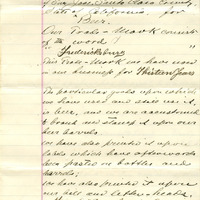 of San Jose, Santa Clara County,
State of California, for
"Beer."
Our Trade-Mark consists
of the word
"Fredericksburg"
This Trade-Mark we have used
in our business for Thirteen Years
The particular goods upon which
we have used and still use it,
is beer, and we are accustomed
to brand and stamp it upon our
beer barrels.
We have also printed it upon
labels which have afterwards
been posted on bottles and
barrels;
We have also printed it upon
our bill and letter-heads,